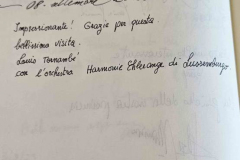 Impressionante! Grazie per questa
bellissima visita.
Louis Tornambé
con l'orchestra Harmonie Ehlerange di Lussemburgo.